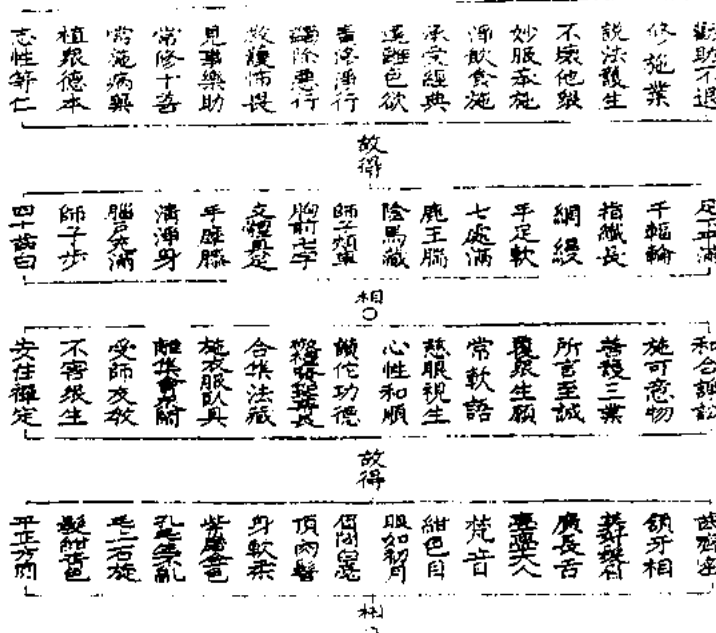 勸助不退
修施業
説法護生
不壞他眾
妙服奉施
淨飲食施
承受經典
遠離色欲
淨行
蠲除惡行
救護怖畏
見事樂助
常修十善
常施病藥
植眾德本
志性等仁
故得
足平滿
千輻輪
指纖長
網縵
手足軟
七處滿
鹿王腨
陰馬藏
師子頰車
胸前卍字
支體具足
手摩膝
清淨身
腦戶充滿
師子步
四十齒白
相○
和合諍訟
施可意物
善護三業
所言至誠
覆眾生願
常軟語
慈眼視生
心性和順
讚佗功德
合集法藏
施衣服臥具
離集會眾鬧
受師友教
不害眾生
安住禪定
故得
齒齊密
頷牙相
美好
廣長舌
梵音
紺色目
眼如初月
眉間白毫
頂肉髻
身軟柔
紫磨金色
孔毛無亂
毛上右旋
髮紺青色
平正方圓
相○